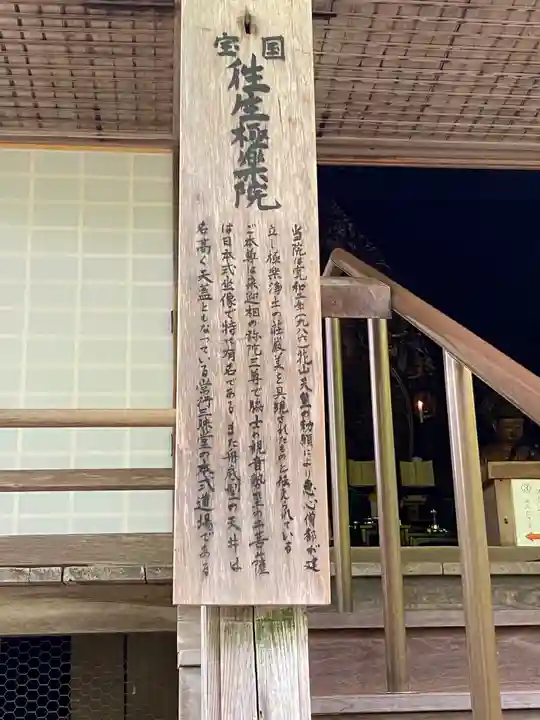 国宝
往生極楽院
当院は寛和二年(九八六)花山天皇の勅願により恵心僧都が建
立し極楽浄土の荘厳美を具現されたものと伝えられている
ご本尊は来迎相の弥陀三尊で脇士の観音勢至の二菩薩
は日本式坐像で特に有名である また舟底型の天井は
名高く天蓋ともなっている常行三昧堂の本式道場である